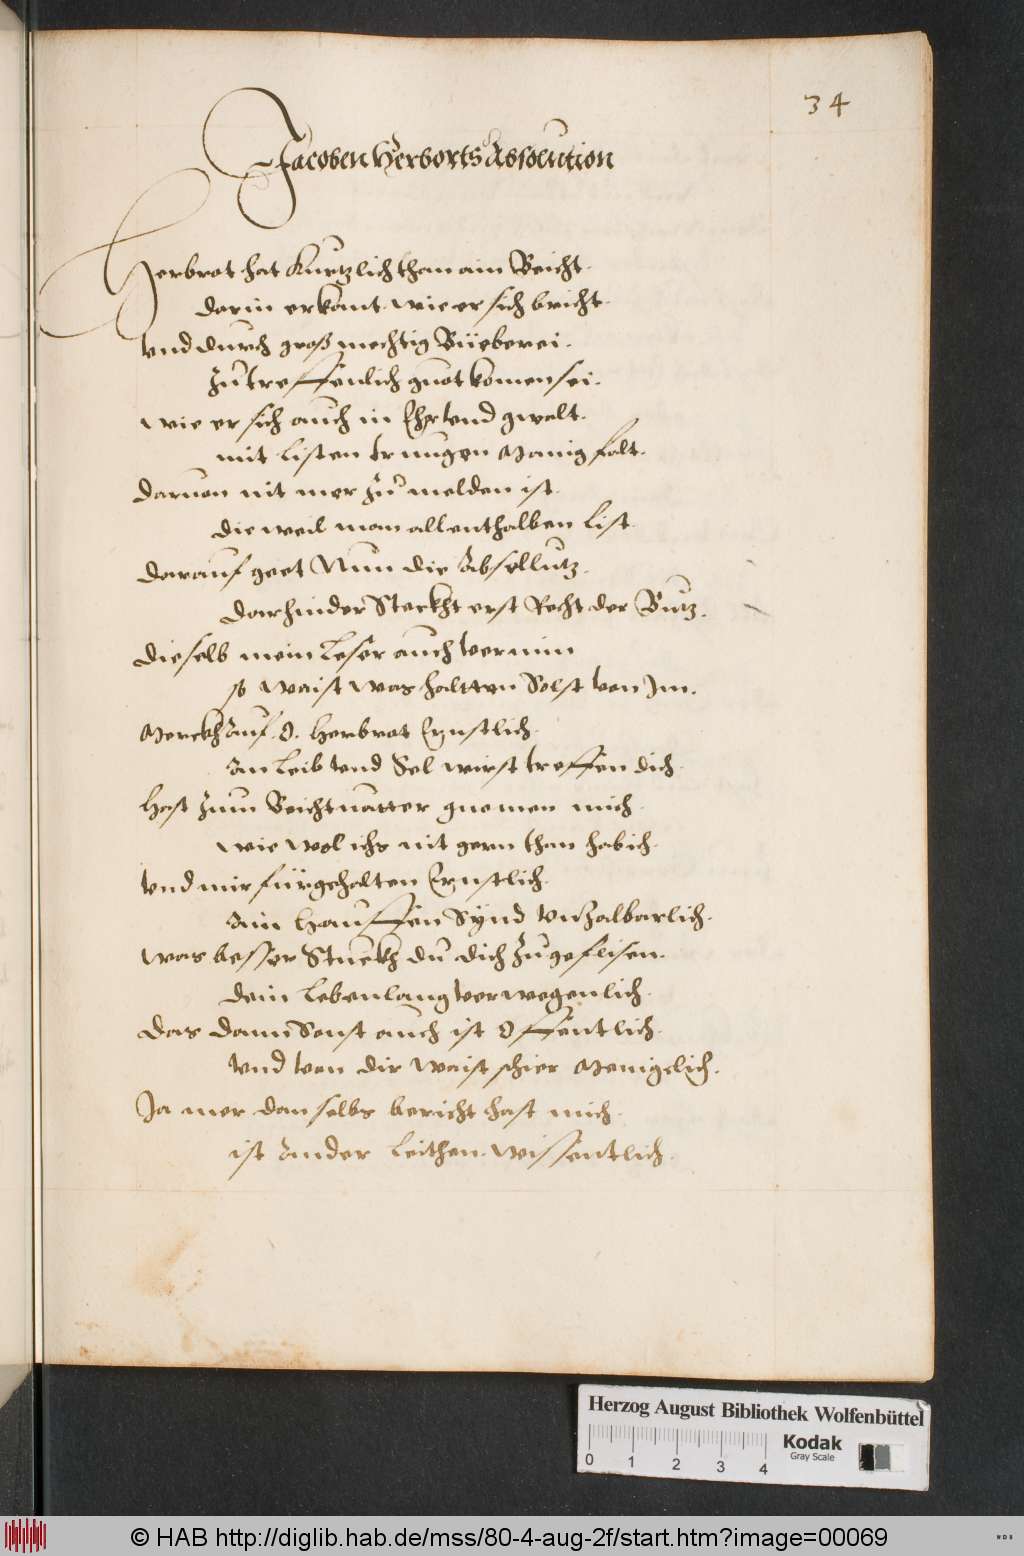 34
Jacoben Herborts Absolution
Herbrot hat Kurtzlich than ain Beicht.
darin erkant. wie er sich bricht.
vnd durch groß mechtig Büeberei.
Zu treffenlich guot komen sei.
wie er sich auch in Ehr vnd gwalt.
mit listen trungen Manigfalt.
daruon nit mer zu melden ist.
die weil man allenthalben list.
darauf geet Nun die Absollutz.
darhinder Steckht erst Recht der Butz.
dieselb mein leser auch vernim
so waist was haltten Solst von Im.
Merckh Auf. O. Herbrot Ernstlich.
An leib vnd Sel wirst treffen dich.
hast zum Beichtuatter gnomen mich.
wie wol ichs nit gern than hab ich.
vnd mir fürgehalten Ernstlich.
Ain Hauffen Sÿnd vnzalbarlich.
was besser Stuckh du dich zu geflisen.
dein lebenlang verwegenlich.
das dann Sonst auch ist Offentlich.
vnd von dir waist schier Menigelich.
Ja mer dan selbs bericht hast mich.
ist Ander leithen. wissentlich.
Herzog August Bibliothek Wolfenbüttel
Kodak
Gray Scale
0 1 2 3 4
© HAB http://diglib.hab.de/mss/80-4-aug-2f/start.htm?image=00069